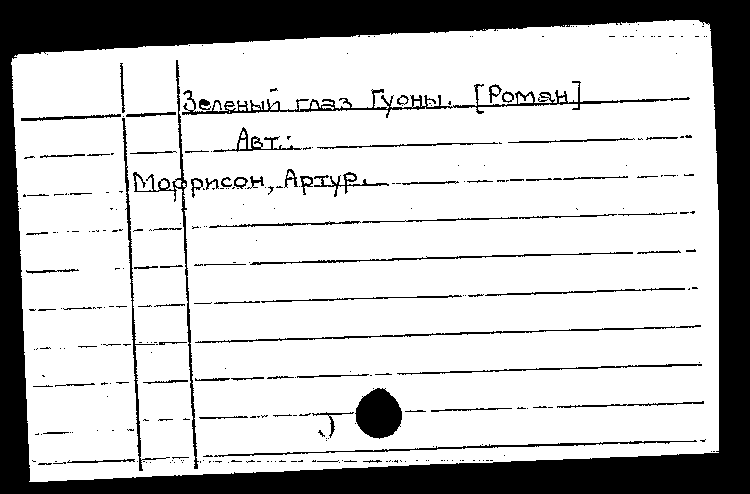 Зеленый глаз Гуоны. [Роман]
Авт.:
Моррисон, Артур.